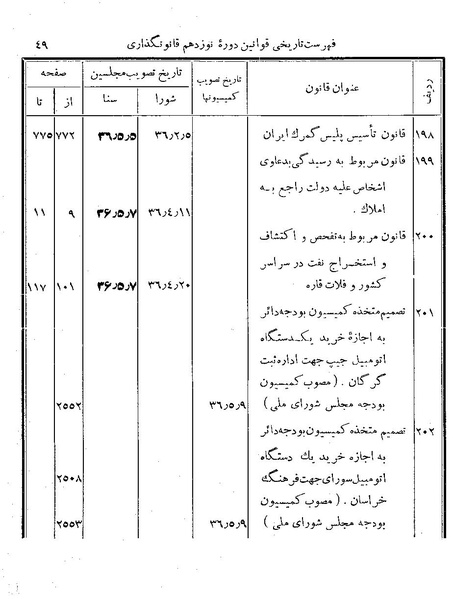 فهرست تاریخی قوانین دورهٔ نوزدهم قانونگذاری ۴۹
ردیف عنوان قانون تاریخ تصویب کمیسیونها تاریخ تصویب مجلسین صفحه
شورا سنا از تا
۱۹۸ قانون تأسیس پلیس گمرک ایران ۳۶٫۲٫۵ ۳۶٫۵٫۵ ۷۷۲ ۷۷۵
۱۹۹ قانون مربوط به رسیدگی بدعاوی
اشخاص علیه دولت راجع به
املاک . ۳۶٫۴٫۱۱ ۳۶٫۵٫۷ ۹ ۱۱
۲۰۰ قانون مربوط به تفحص و اکتشاف
و استخراج نفت در سراسر
کشور و فلات قاره ۳۶٫۴٫۲۰ ۳۶٫۵٫۷ ۱۰۱ ۱۱۷
۲۰۱ تصمیم متخذه کمیسیون بودجه دائر
به اجازه خرید یک دستگاه
اتومبیل جیپ جهت اداره ثبت
گرگان . ( مصوب کمیسیون
بودجه مجلس شورای ملی ) ۳۶٫۵٫۹ ۲۵۵۲
۲۰۲ تصمیم متخذه کمیسیون بودجه دائر
به اجازه خرید یک دستگاه
اتومبیل سواری جهت فرهنگ ۲۵۰۸
خراسان . ( مصوب کمیسیون
بودجه مجلس شورای ملی ) ۳۶٫۵٫۹ ۲۵۵۳